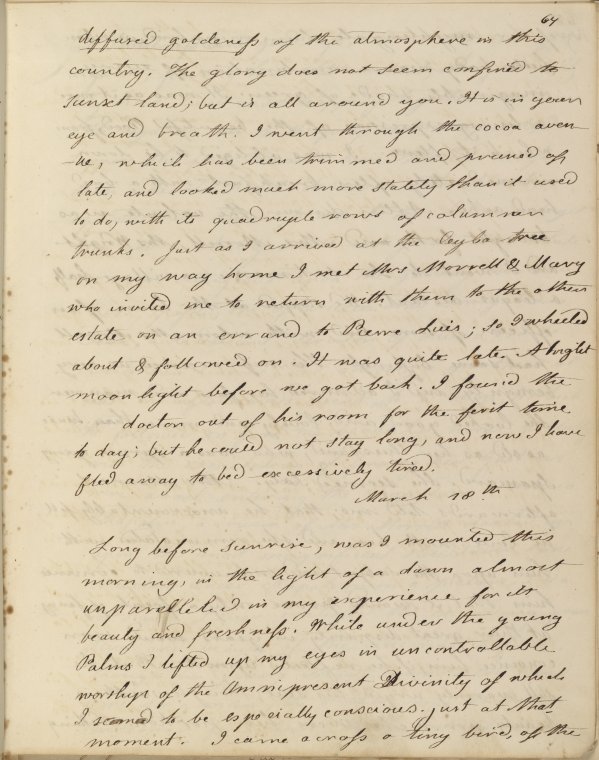 64
diffused goldeness of the atmosphere in this
country. The glory does not seem confined to
sunset land; but is all around you. It is in your
eye and breath. I went through the cocoa aven-
-ue, which has been trimmed and pruned of
late, and looked much more stately than it used
to do, with its quadruple rows of columner
trunks. Just as I arrived at the Ceyba tree
on my way home I met Mrs Morrell & Mary
who invited me to return with them to the other
estate on an errand to Pierre Luis; so I wheeled
about & followed on. It was quite late. A bright
moonlight before we got back. I found the
doctor out of his room for the first time
to day; but he could not stay long, and now I have
fled away to bed excessively tired.
March 18th
Long before sunrise, was I mounted this
morning, in the light of a dawn almost
unparalleled in my experience for its
beauty and freshness. While under the young
Palms I lifted up my eyes in uncontrollable
worship of the Omnipresent Divinity of which
I seemed to be especially conscious just at that
moment. I came across a tiny bird, of the